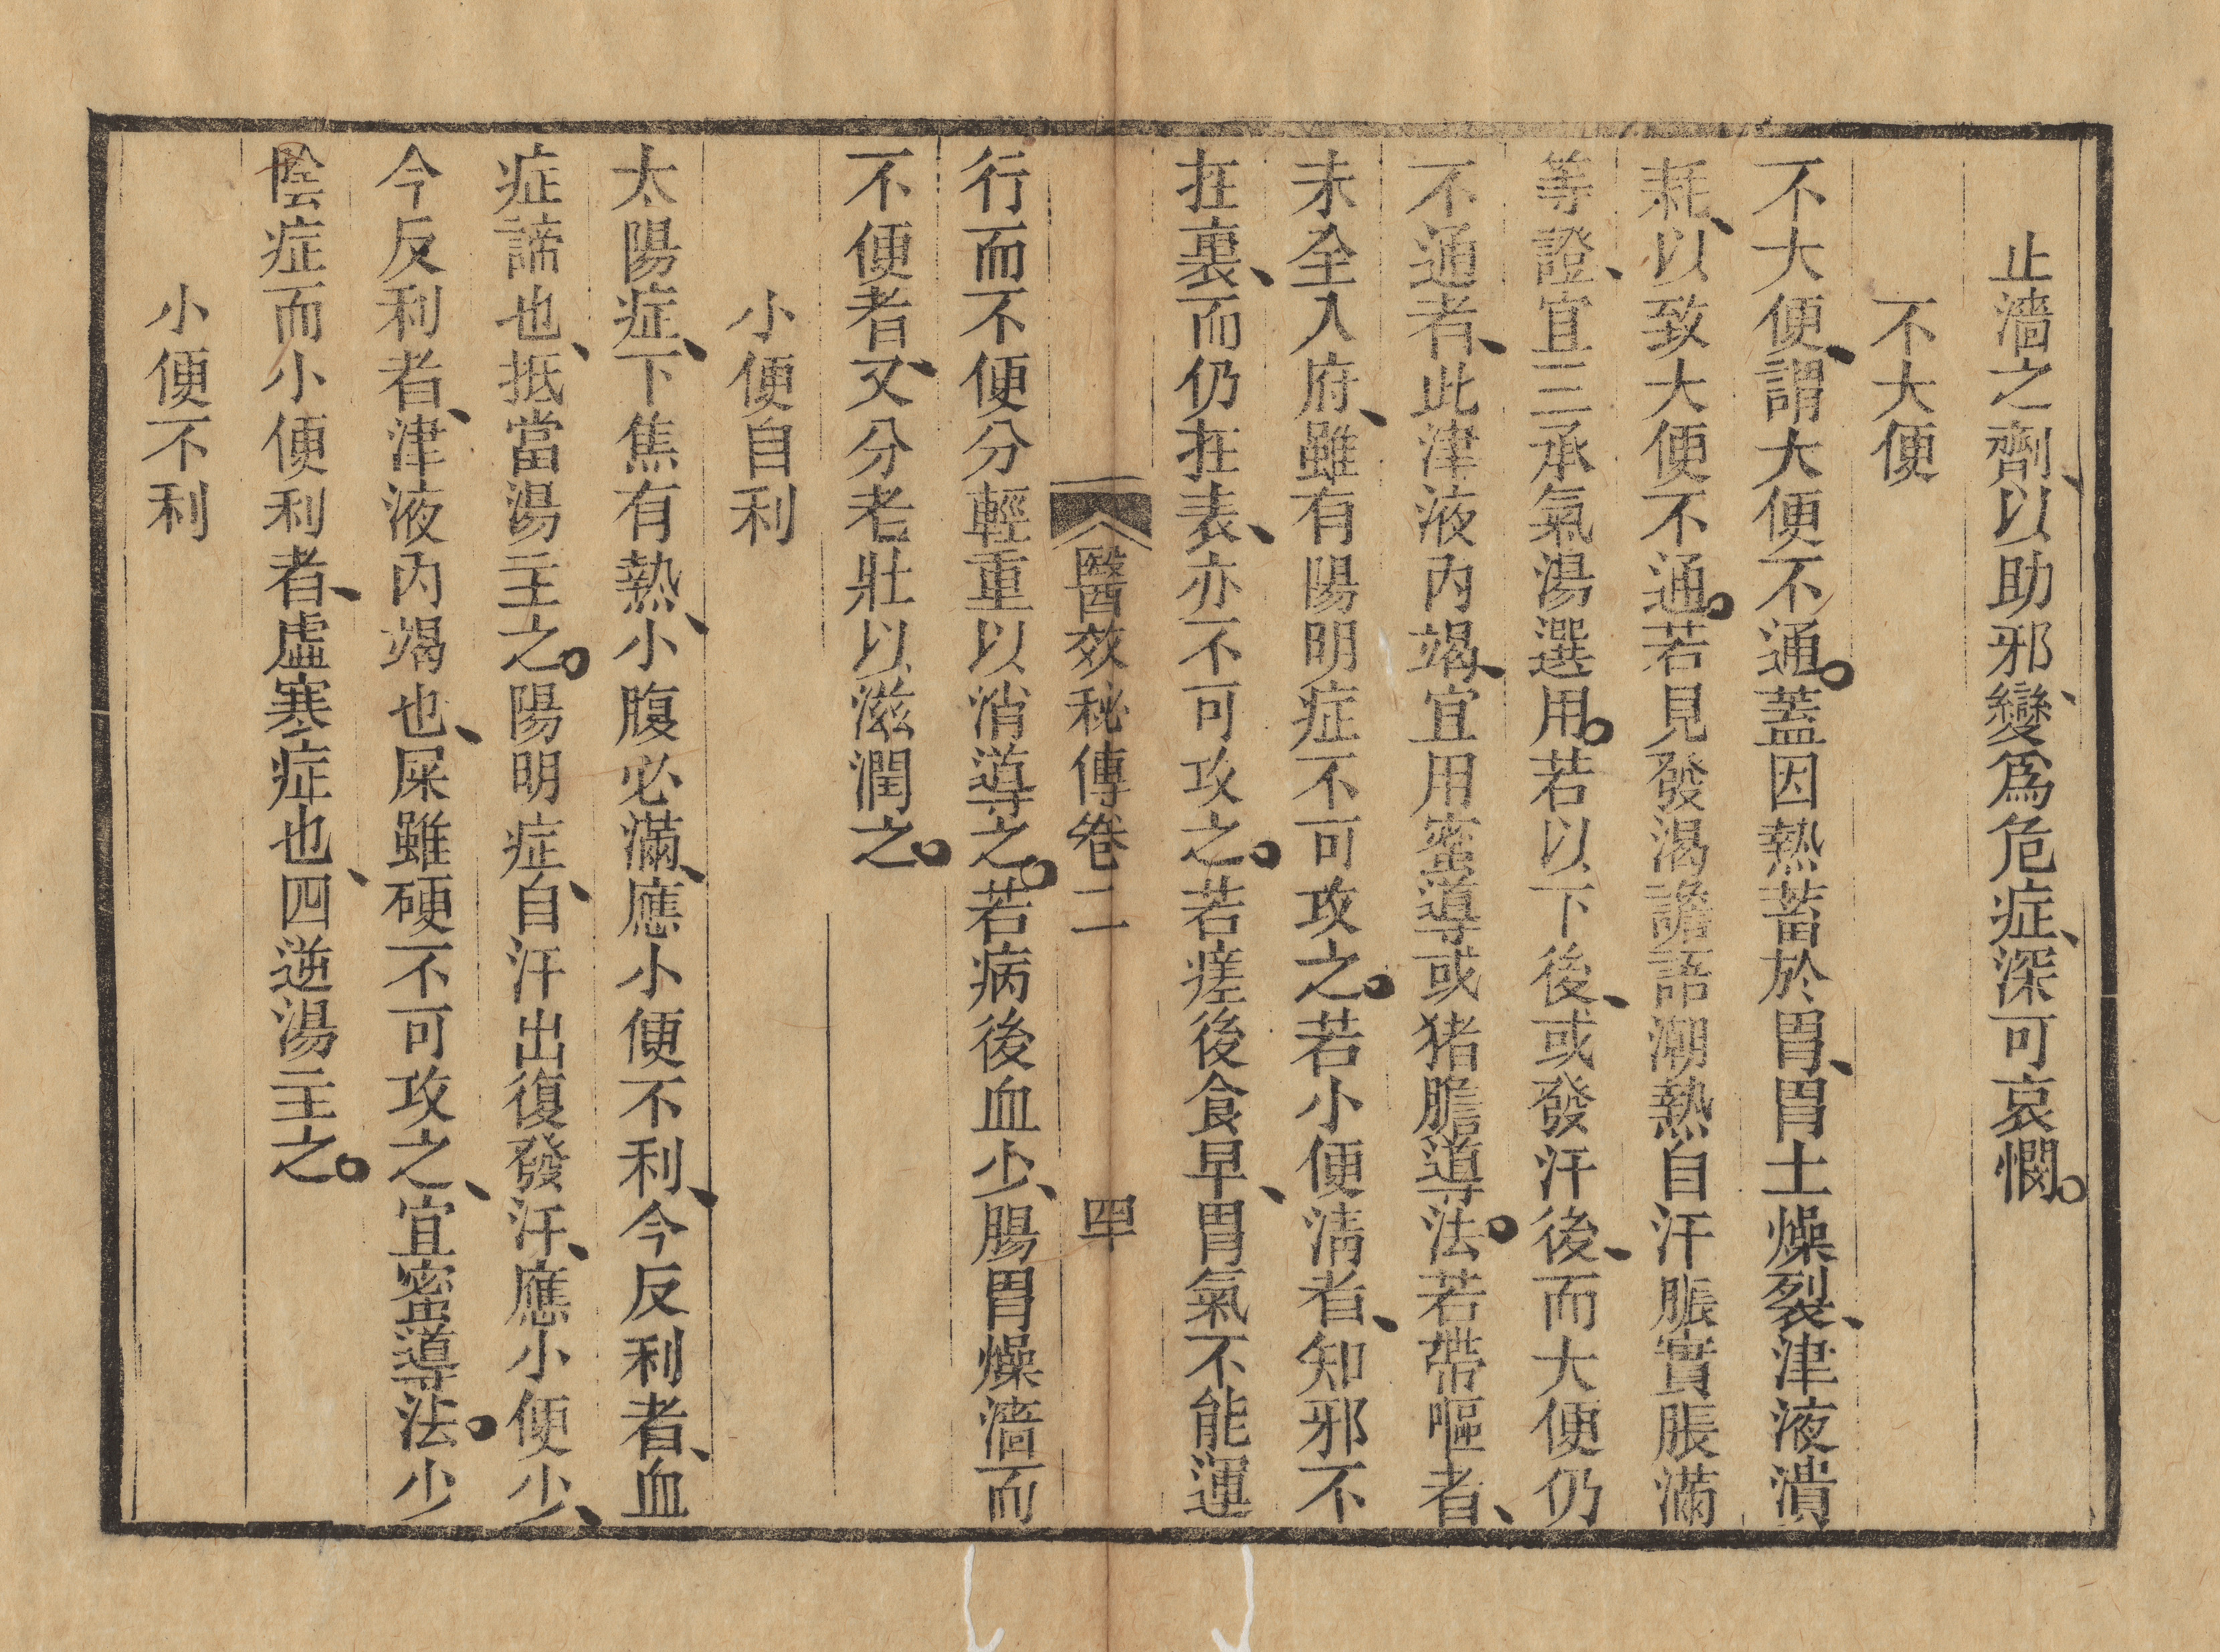 止濇之劑、以助邪、變爲危症、深可哀憫。
不大便
不大便、謂大便不通。蓋因熱蓄於胃、胃土燥裂、津液潰
耗、以致大便不通。若見發渴譫語潮熱自汗脹實脹滿
等證、宜三承氣湯選用。若以下後、或發汗後、而大便仍
不通者、此津液內竭、宜用蜜導或猪膽導法。若帶嘔者、
未全入府、雖有陽明症不可攻之。若小便淸者、知邪不
在裏、而仍在表、亦不可攻之。若瘥後食早、胃氣不能運
醫效秘傳卷二 四
行而不便分輕重以消導之。若病後血少、腸胃燥濇而
不便者、又分老壯以滋潤之。
小便自利
太陽症、下焦有熱、小腹必滿、應小便不利、今反利者、血
症諦也、抵當湯主之。陽明症、自汗出復發汗、應小便少、
今反利者、津液內竭也、屎雖硬不可攻之、宜蜜導法。少
陰症而小便利者、虛寒症也、四逆湯主之。
小便不利